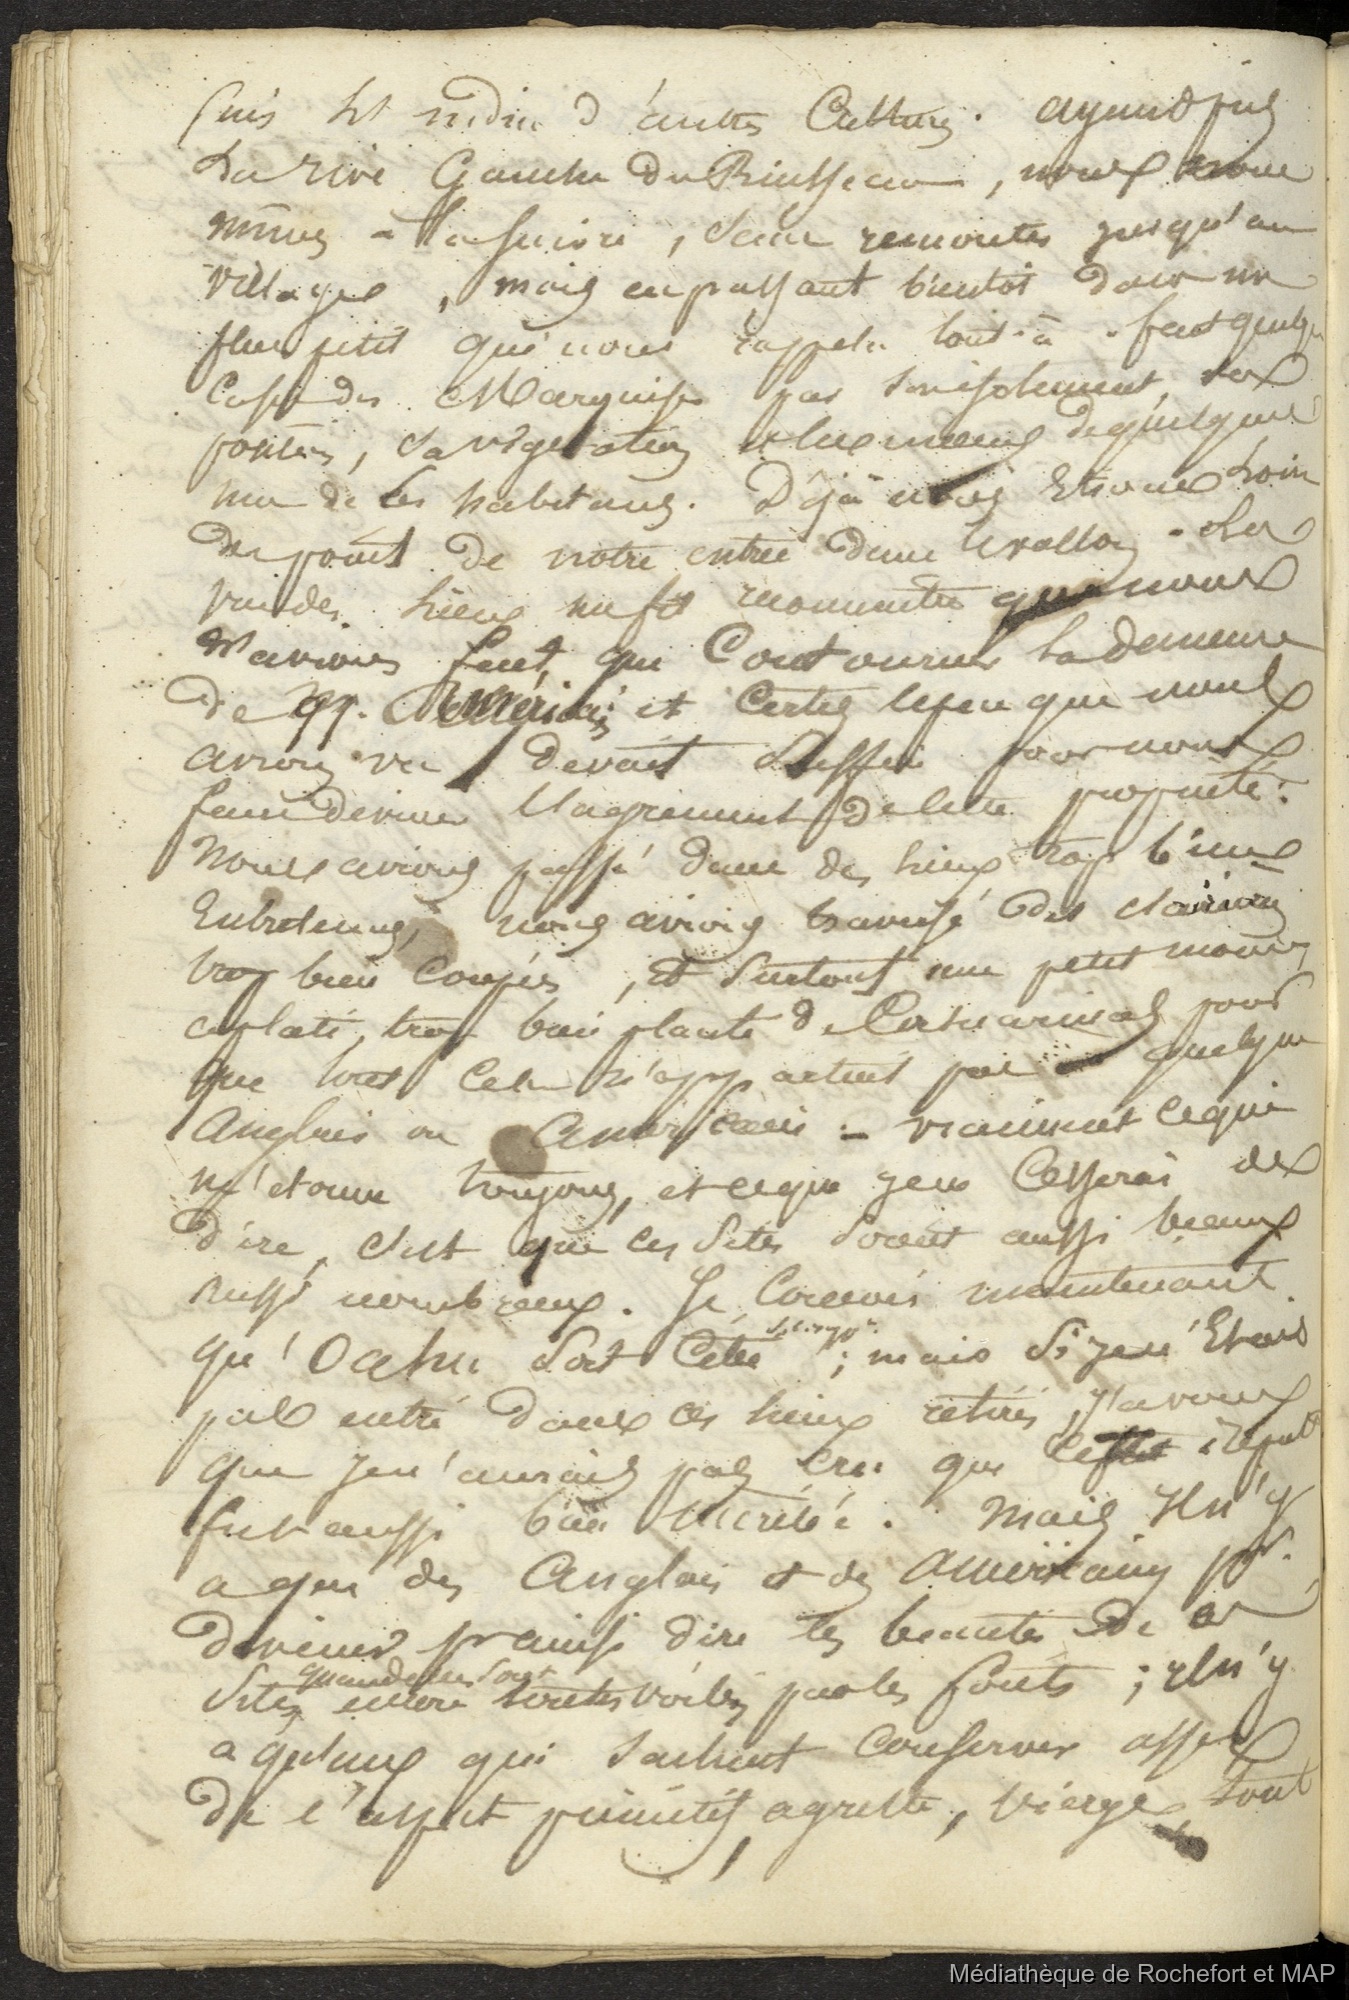 puis et d'autres Cultures. ayant pris
La rive Gauche du Ruisseau, nous
à la suivre, sans remonter jusqu'au
village, mais en passant bientot dans un
plus petit qui nous rappela tout-à-fait quelques
Cases des Marquises par son isolement, sa
position, sa végétation et les de quelques
de ses habitans. Déjà nous Etions Loin
du point de notre entrée dans le vallon. La
vue des lieux me fit reconnaitre que nous
n'avions fait que Contourner la demeure
de Mr. et Certes le peu que nous
avions vu devait Suffire pour nous
faire deviner l'agrement de cette propriété.
Nous avions passé dans des lieux trop bien
Entretenus, nous avions traversé des
trop bien Coupés, et Surtout un petit
aplati, trop bien planté de pour
que tout Cela n'appartint pas à quelque
Anglais ou Américain. – vraiment ce qui
m'etonne toujours, et ce que je ne Cesserai de
dire, c'est que ces Sites soient aussi beaux
aussi nombreux. Je Concois maintenant
qu'Oahu soit Citée ; mais Si je n'Etais
pas entré dans ces lieux retirés, j'avoue
que je n'aurais pas cru que
fut aussi bien méritée. Mais Il n'y
a que des Anglais et des Américains pr.
deviner pr ainsi dire les beautés de ces
Sites, quand elles sont encore toutes voilées par les forêts ; il n'y
a qu'eux qui sachent Conserver assez
de l'aspect primitif, agreste, vierge, tout
Médiathèque de Rochefort et MAP